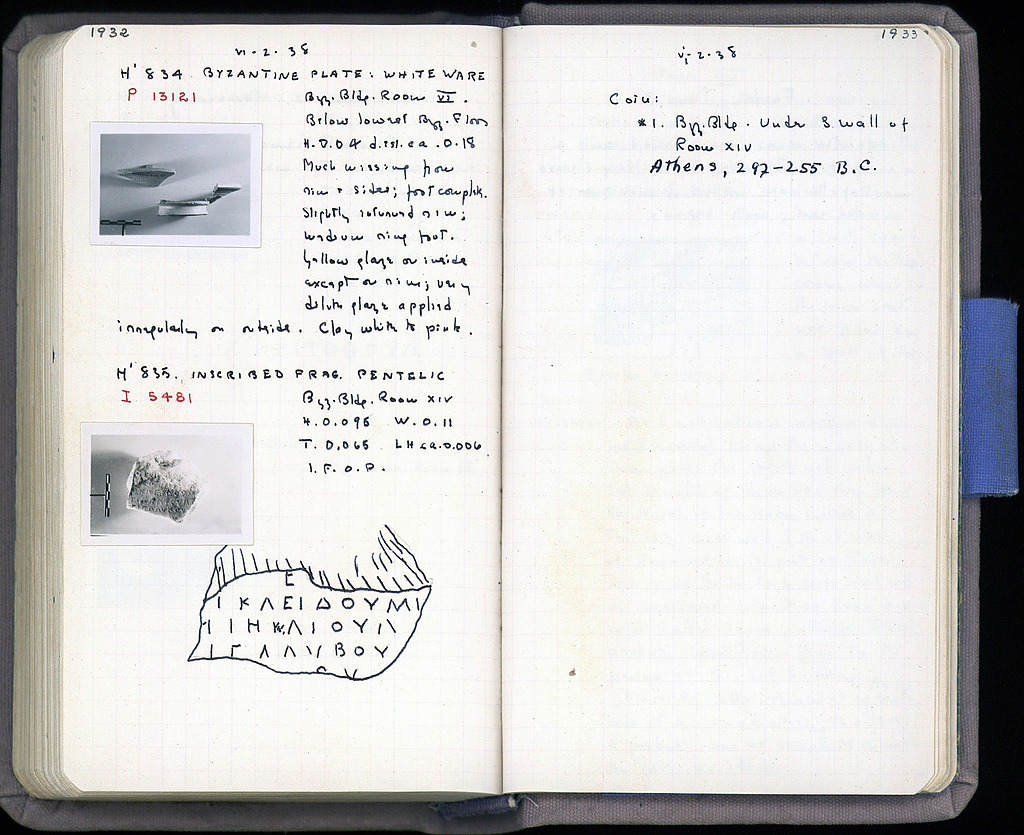 1932
VI-2-38
H' 834 BYZANTINE PLATE: WHITE WARE
P 13121
Byz. Bldg. Room VI.
Below lowest Byz. Floor
H. 0.04 diam. ca. 0.18
Much missing from
rim & sides; foot complete.
Slightly inturned rim;
medium ring foot.
Yellow glaze on inside
except on rim; very
dilute glaze applied
irregularly on outside. Clay white to pink.
H' 835. INSCRIBED FRAG. PENTELIC
I 5481
Byz. Bldg. Room XIV
H. 0.095 W. 0.11
T. 0.065 LH ca. 0.006
I. F. o. P.
Ε
Ι Κ Λ Ε Ι Δ Ο Υ Μ Ι
Ι Ι Η Κ Λ Ι Ο Υ
Ι Γ Λ Λ Υ Β Ο Υ
1933
VI-2-38
Coin:
*1. Byz. Bldg. Under S wall of
Room XIV
Athens, 297-255 B.C.